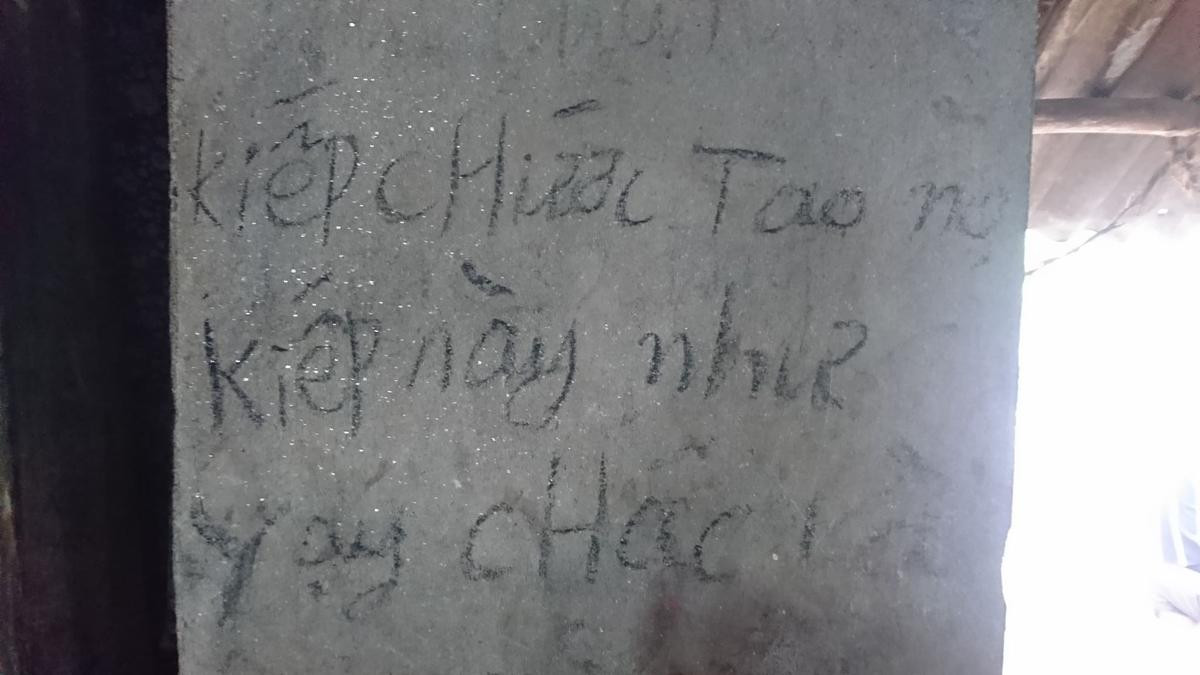 kiếp cHước Tao nợ
kiếp này như
Vạy cHắc là